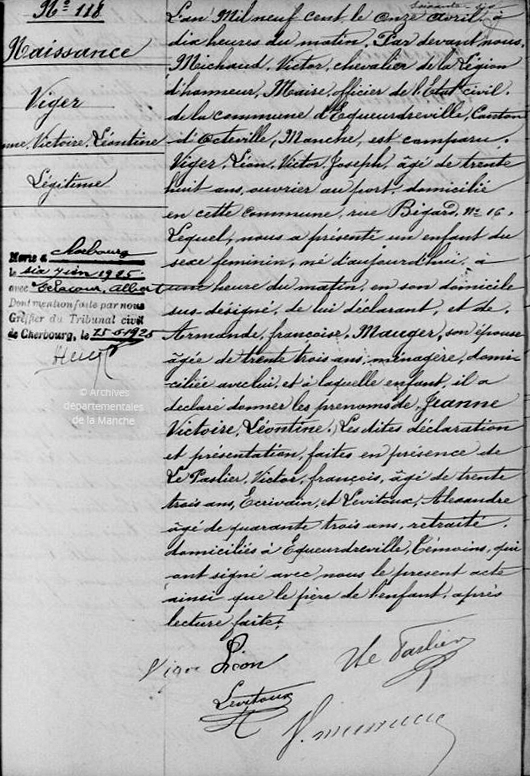 Nº 118
Naissance
Viger
nne, Victoire, Léontine
Légitime
Marié à Cherbourg
le six juin 1925
avec Delacour, Albert
Dont mention faite par nous
Greffier du Tribunal civil
de Cherbourg, le 25-6-1925
© Archives
départementales
de la Manche
L'an Mil neuf cent, le onze avril, à
dix heures du matin, Par devant nous,
Michaud, Victor, chevalier de la Légion
d'honneur, Maire, officier de l'Etat civil,
de la commune d'Equeurdreville, Canton
d'Octeville, Manche, est comparu,
Viger, Léon, Victor Joseph, âgé de trente
huit ans, ouvrier au port, domicilié
en cette Commune, rue Bégard, nº 16,
Lequel, nous a présenté un enfant du
sexe féminin, né d'aujourd'hui, à
une heure du matin, en son domicile
sus-désigné, de lui déclarant, et de
Armande, françoise, Mauger, son épouse
âgée de trente trois ans, ménagère, domi-
ciliée avec lui, et à laquelle enfant, il a
déclaré donner les prénoms de, Jeanne
Victoire, Léontine, Les dites déclaration
et présentation, faites en présence de
Le Paslier, Victor, françois, âgé de trente
trois ans, Ecrivain, et Levitoux, Alexandre
âgé de quarante trois ans, retraité,
domiciliés à Equeurdreville, Témoins, qui
ont signé avec nous le présent acte
ainsi que le père de l'enfant, après
lecture faite.
Viger Léon
Le Paslier
Levitoux